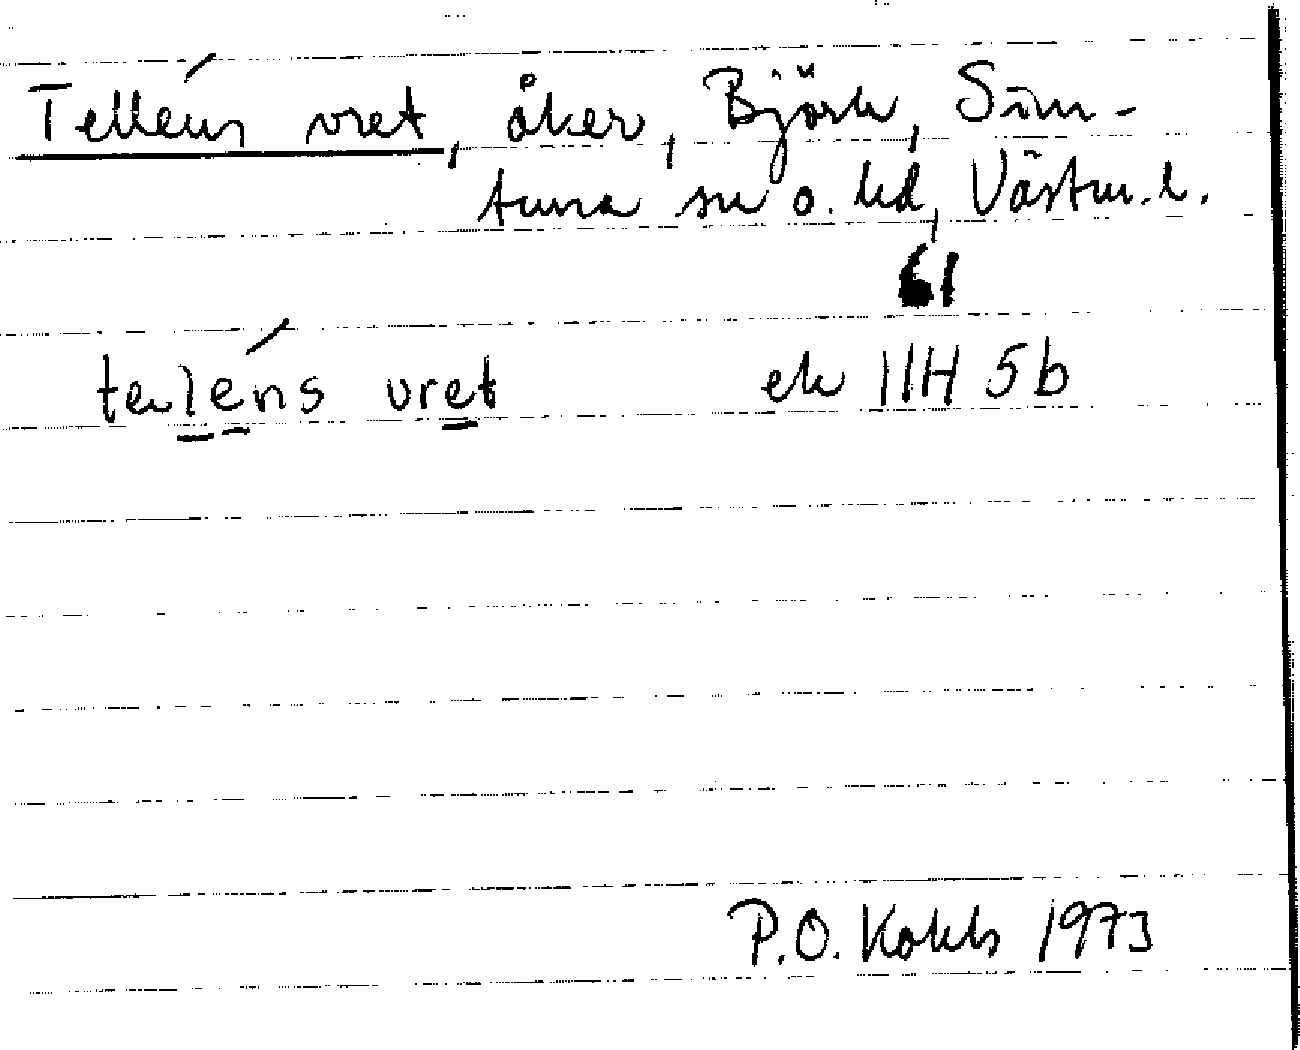 Telléns vret, åker, Björk, Sim-
tuna sn o. hd, Västm. l.
61
telléns vret ek 11H 5b
P.O. Kokk 1973